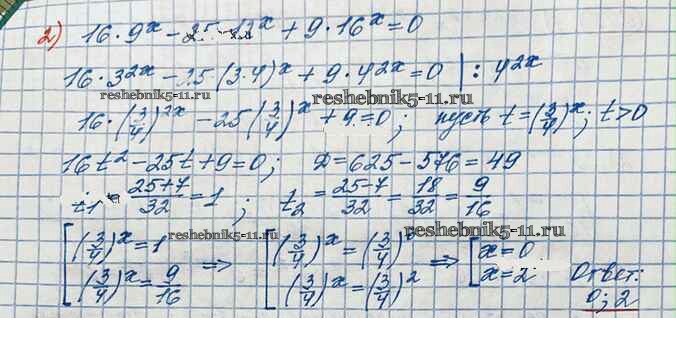 2) 16·9ˣ − 25·12ˣ + 9·16ˣ = 0
16·3²ˣ − 25(3·4)ˣ + 9·4²ˣ = 0 | : 4²ˣ
reshebnik5-11.ru
16·(3/4)²ˣ − 25(3/4)ˣ + 9 = 0; пусть t = (3/4)ˣ; t>0
reshebnik5-11.ru
16t² − 25t + 9 = 0; D = 625 − 576 = 49
t₁ = (25+7)/32 = 1; t₂ = (25−7)/32 = 18/32 = 9/16
reshebnik5-11.ru
reshebnik5-11.ru
[(3/4)ˣ = 1 ⇒ [(3/4)ˣ = (3/4)⁰ ⇒ [x = 0
(3/4)ˣ = 9/16 (3/4)ˣ = (3/4)² x = 2 Ответ:
0; 2